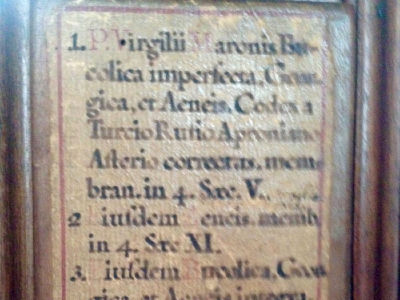 1. P. Virgilii Maronis Bu-
colica imperfecta, Geor-
gica, et Aeneis. Codex a
Turcio Rufio Aproniano
Asterio correctus. mem-
bran. in 4. Sæc. V.
2 Eiusdem Aeneis. memb.
in 4. Sæc XI.
3. Eiusdem Bucolica, Geor-
gica, et Aeneis integra